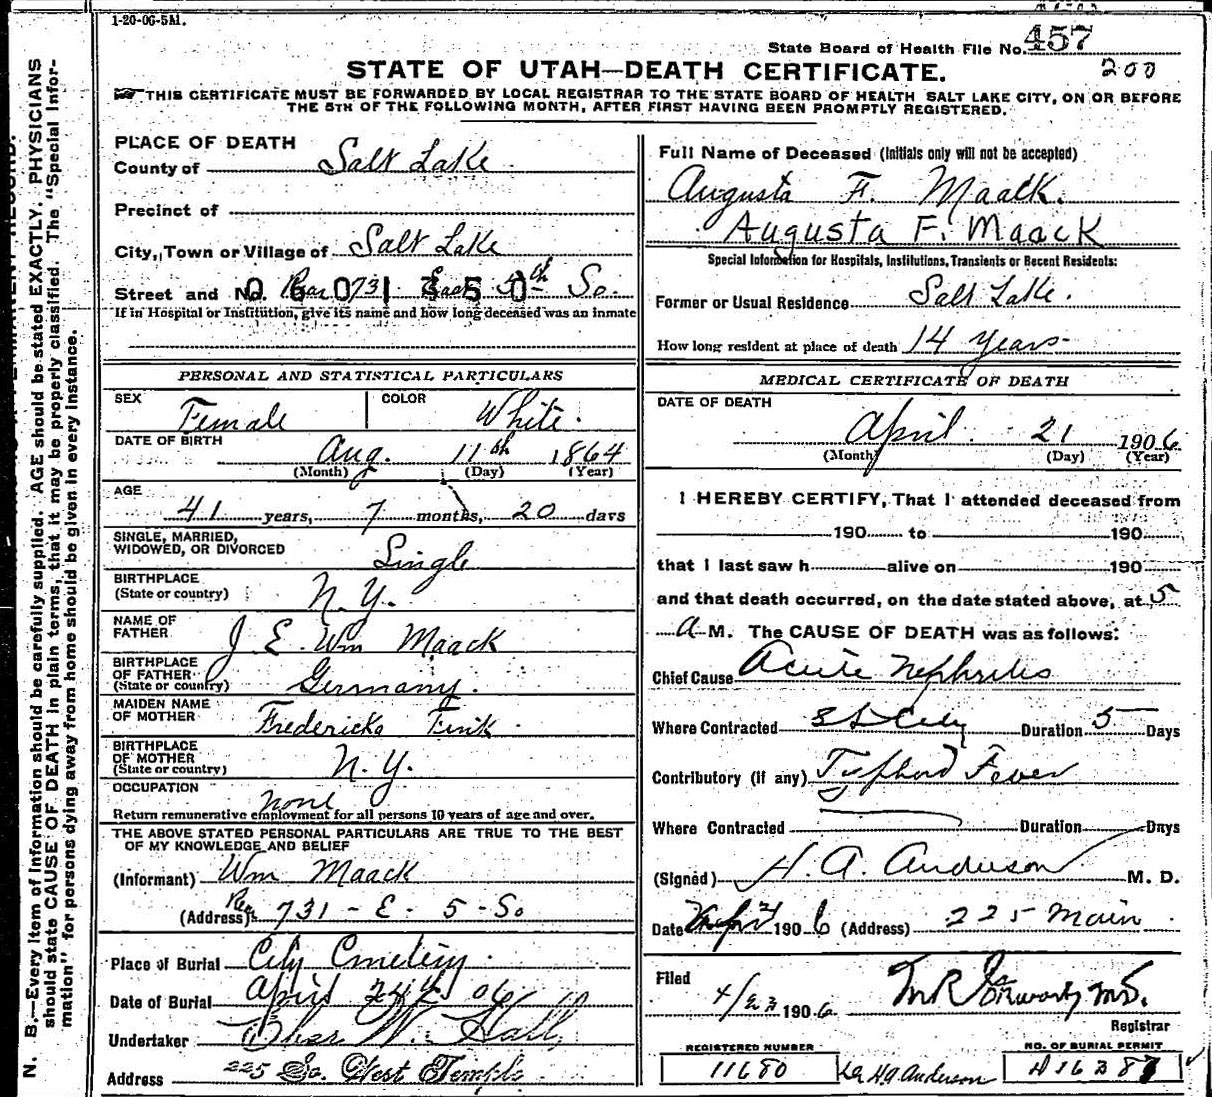 1-20-06-5M.
State Board of Health File No. 457
200
STATE OF UTAH—DEATH CERTIFICATE.
THIS CERTIFICATE MUST BE FORWARDED BY LOCAL REGISTRAR TO THE STATE BOARD OF HEALTH SALT LAKE CITY, ON OR BEFORE
THE 5TH OF THE FOLLOWING MONTH, AFTER FIRST HAVING BEEN PROMPTLY REGISTERED.
PLACE OF DEATH
County of Salt Lake
Precinct of
City, Town or Village of Salt Lake
Street and No. Rear 731 East 5th So.
0601350
If in Hospital or Institution, give its name and how long deceased was an inmate
Full Name of Deceased (Initials only will not be accepted)
Augusta F. Maack.
Augusta F. Maack
Special Information for Hospitals, Institutions, Transients or Recent Residents:
Former or Usual Residence Salt Lake.
How long resident at place of death 14 years-
PERSONAL AND STATISTICAL PARTICULARS
SEX Female
COLOR White.
DATE OF BIRTH Aug. 11th 1864
(Month) (Day) (Year)
AGE
41 years, 7 months, 20 days
SINGLE, MARRIED,
WIDOWED, OR DIVORCED Single
BIRTHPLACE
(State or country) N. Y.
NAME OF
FATHER J. E. Wm Maack
BIRTHPLACE
OF FATHER
(State or country) Germany.
MAIDEN NAME
OF MOTHER Fredericka Fink.
BIRTHPLACE
OF MOTHER
(State or country) N. Y.
OCCUPATION
None
Return remunerative employment for all persons 10 years of age and over.
THE ABOVE STATED PERSONAL PARTICULARS ARE TRUE TO THE BEST
OF MY KNOWLEDGE AND BELIEF
(Informant) Wm Maack
(Address) Rear 731 - E - 5 - So
Place of Burial City Cmetery
Date of Burial April 24th 06
Undertaker Chas W. Hall
Address 225 So. West Temple
MEDICAL CERTIFICATE OF DEATH
DATE OF DEATH
April 21 1906
(Month) (Day) (Year)
I HEREBY CERTIFY, That I attended deceased from
190 to 190
that I last saw h alive on 190
and that death occurred, on the date stated above, at 5
A M. The CAUSE OF DEATH was as follows:
Chief Cause Acute Nephritis
Where Contracted S L City Duration 5 Days
Contributory (if any) Typhoid Fever
Where Contracted Duration Days
(Signed) H. A. Anderson M. D.
Date Apr 21 1906 (Address) 225 Main
Filed
4/23 1906
Registrar
REGISTERED NUMBER
11680
Dr HA Anderson
NO. OF BURIAL PERMIT
N. B.—Every item of information should be carefully supplied. AGE should be stated EXACTLY. PHYSICIANS
should state CAUSE OF DEATH in plain terms, that it may be properly classified. The "Special Infor-
mation" for persons dying away from home should be given in every instance.